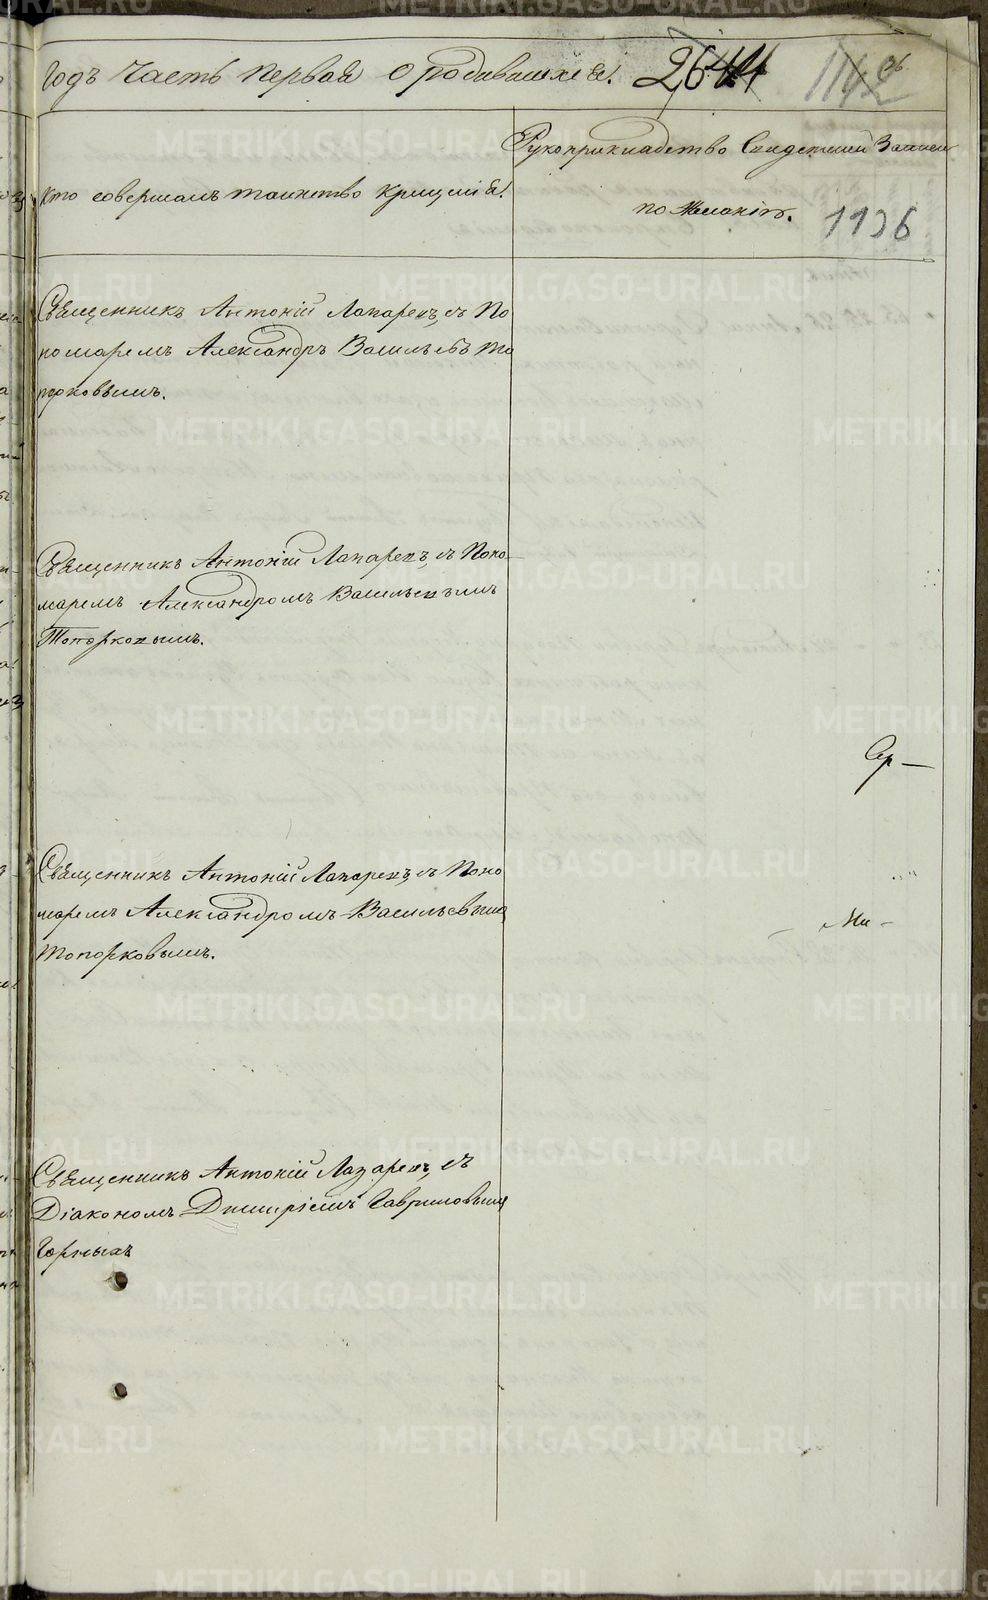 Годъ Часть Первая О родившихся.
1136
Кто совершалъ таинство крещенія.
Рукоприкладство Свидетелей Записи
по желанію.
Священникъ Антоній Лапаревъ, съ По
номаремъ Александръ Васильевъ То
порковымъ.
Священникъ Антоній Лапаревъ, съ Поно-
маремъ Александромъ Васильевымъ
Топорковымъ.
Ср —
Священникъ Антоній Лапаревъ, съ Поно
маремъ Александромъ Васильевымъ
Топорковымъ.
Ми -
Священникъ Антоній Лазаревъ, съ
Діакономъ Димитріемъ Гавриловымъ
Горныхъ
METRIKI.GASO-URAL.RU